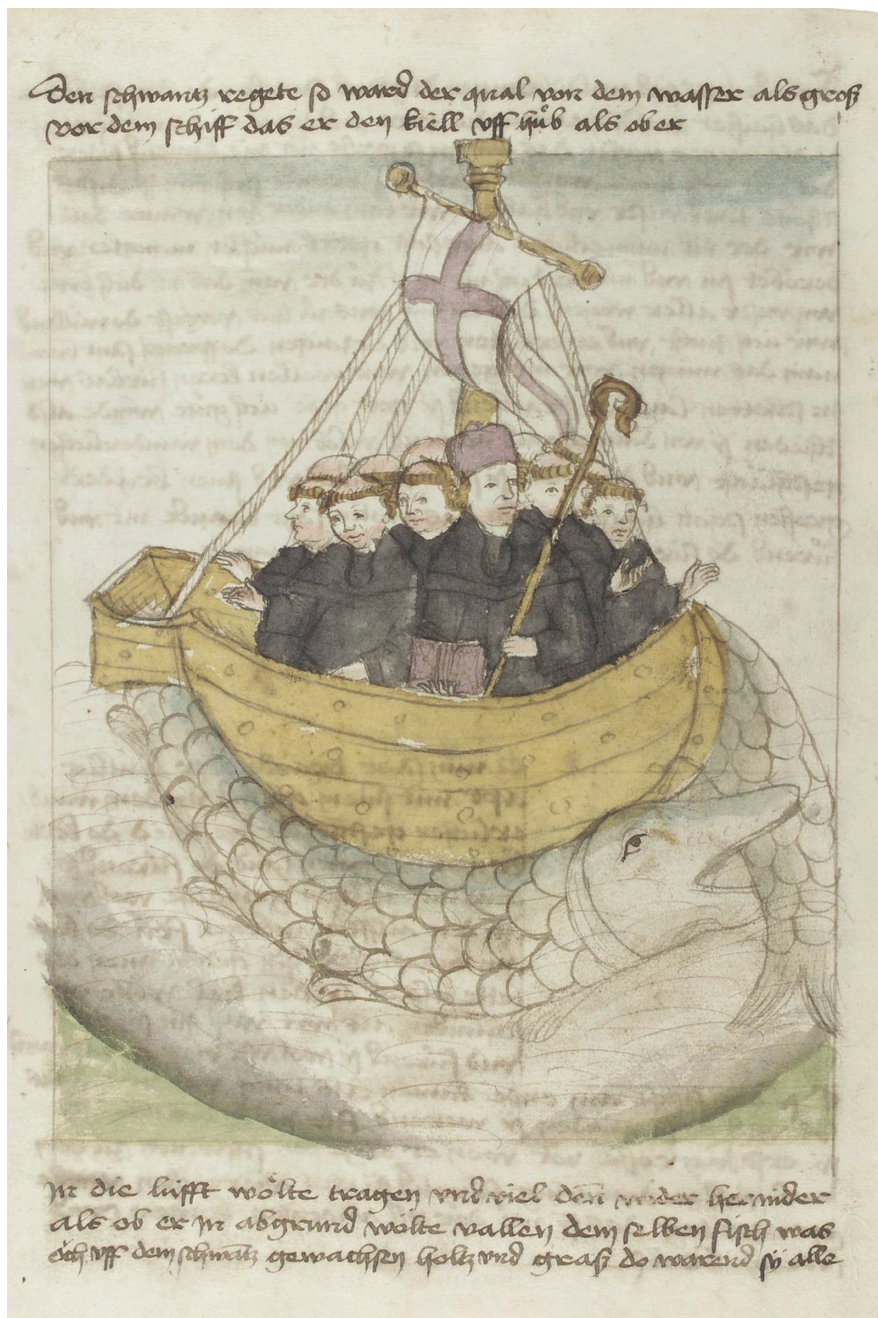 Den schwantz regete so ward der qual von dem wasser als groß
vor dem schiff das er den kiell vff hůb als ob er
In die lufft wölte tragen vnd viel dan wider hernider
als ob er in abgrund wölte vallen dem selben fisch was
öch vff dem schwantz gewachsen holtz vnd graß do warend sy alle